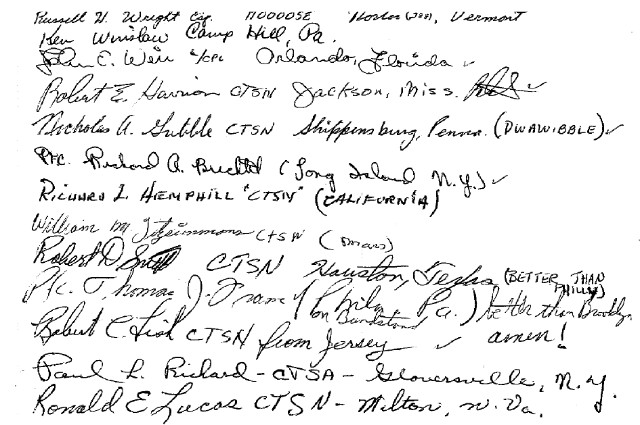 Russell H. Wright Esq. MOOOOSE Vermont
Ken Winslow Camp Hill, Pa.
John C. Weir L/CPL Orlando, Florida ✓
Robert E. Harrison CTSN Jackson, Miss. ✓
Nicholas A. Gubble CTSN Shippensburg, Penna. (DWAWIBBLE) ✓
Pfc. Richard A. Bechtel (Long Island N.Y.) ✓
RICHARD L HEMPHILL "CTSN" (CALIFORNIA)
William M Fitzsimmons CTSN
Robert D. CTSN Houston, Texas (BETTER THAN PHILLY)
Pfc. Thomas J. (Phila Pa.) better than Brooklyn
on Bandstand
Robert C. Fish CTSN from Jersey ✓ amen!
Paul L. Richard - CTSA - Gloversville, N.Y.
Ronald E Lucas CTSN - Milton, W. Va.